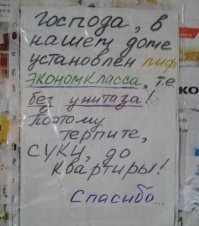 Господа, в
нашем доме
установлен лифт
экономкласса, т.е
без унитаза!
Поэтому
терпите,
суки, до
квартиры!
Спасибо...